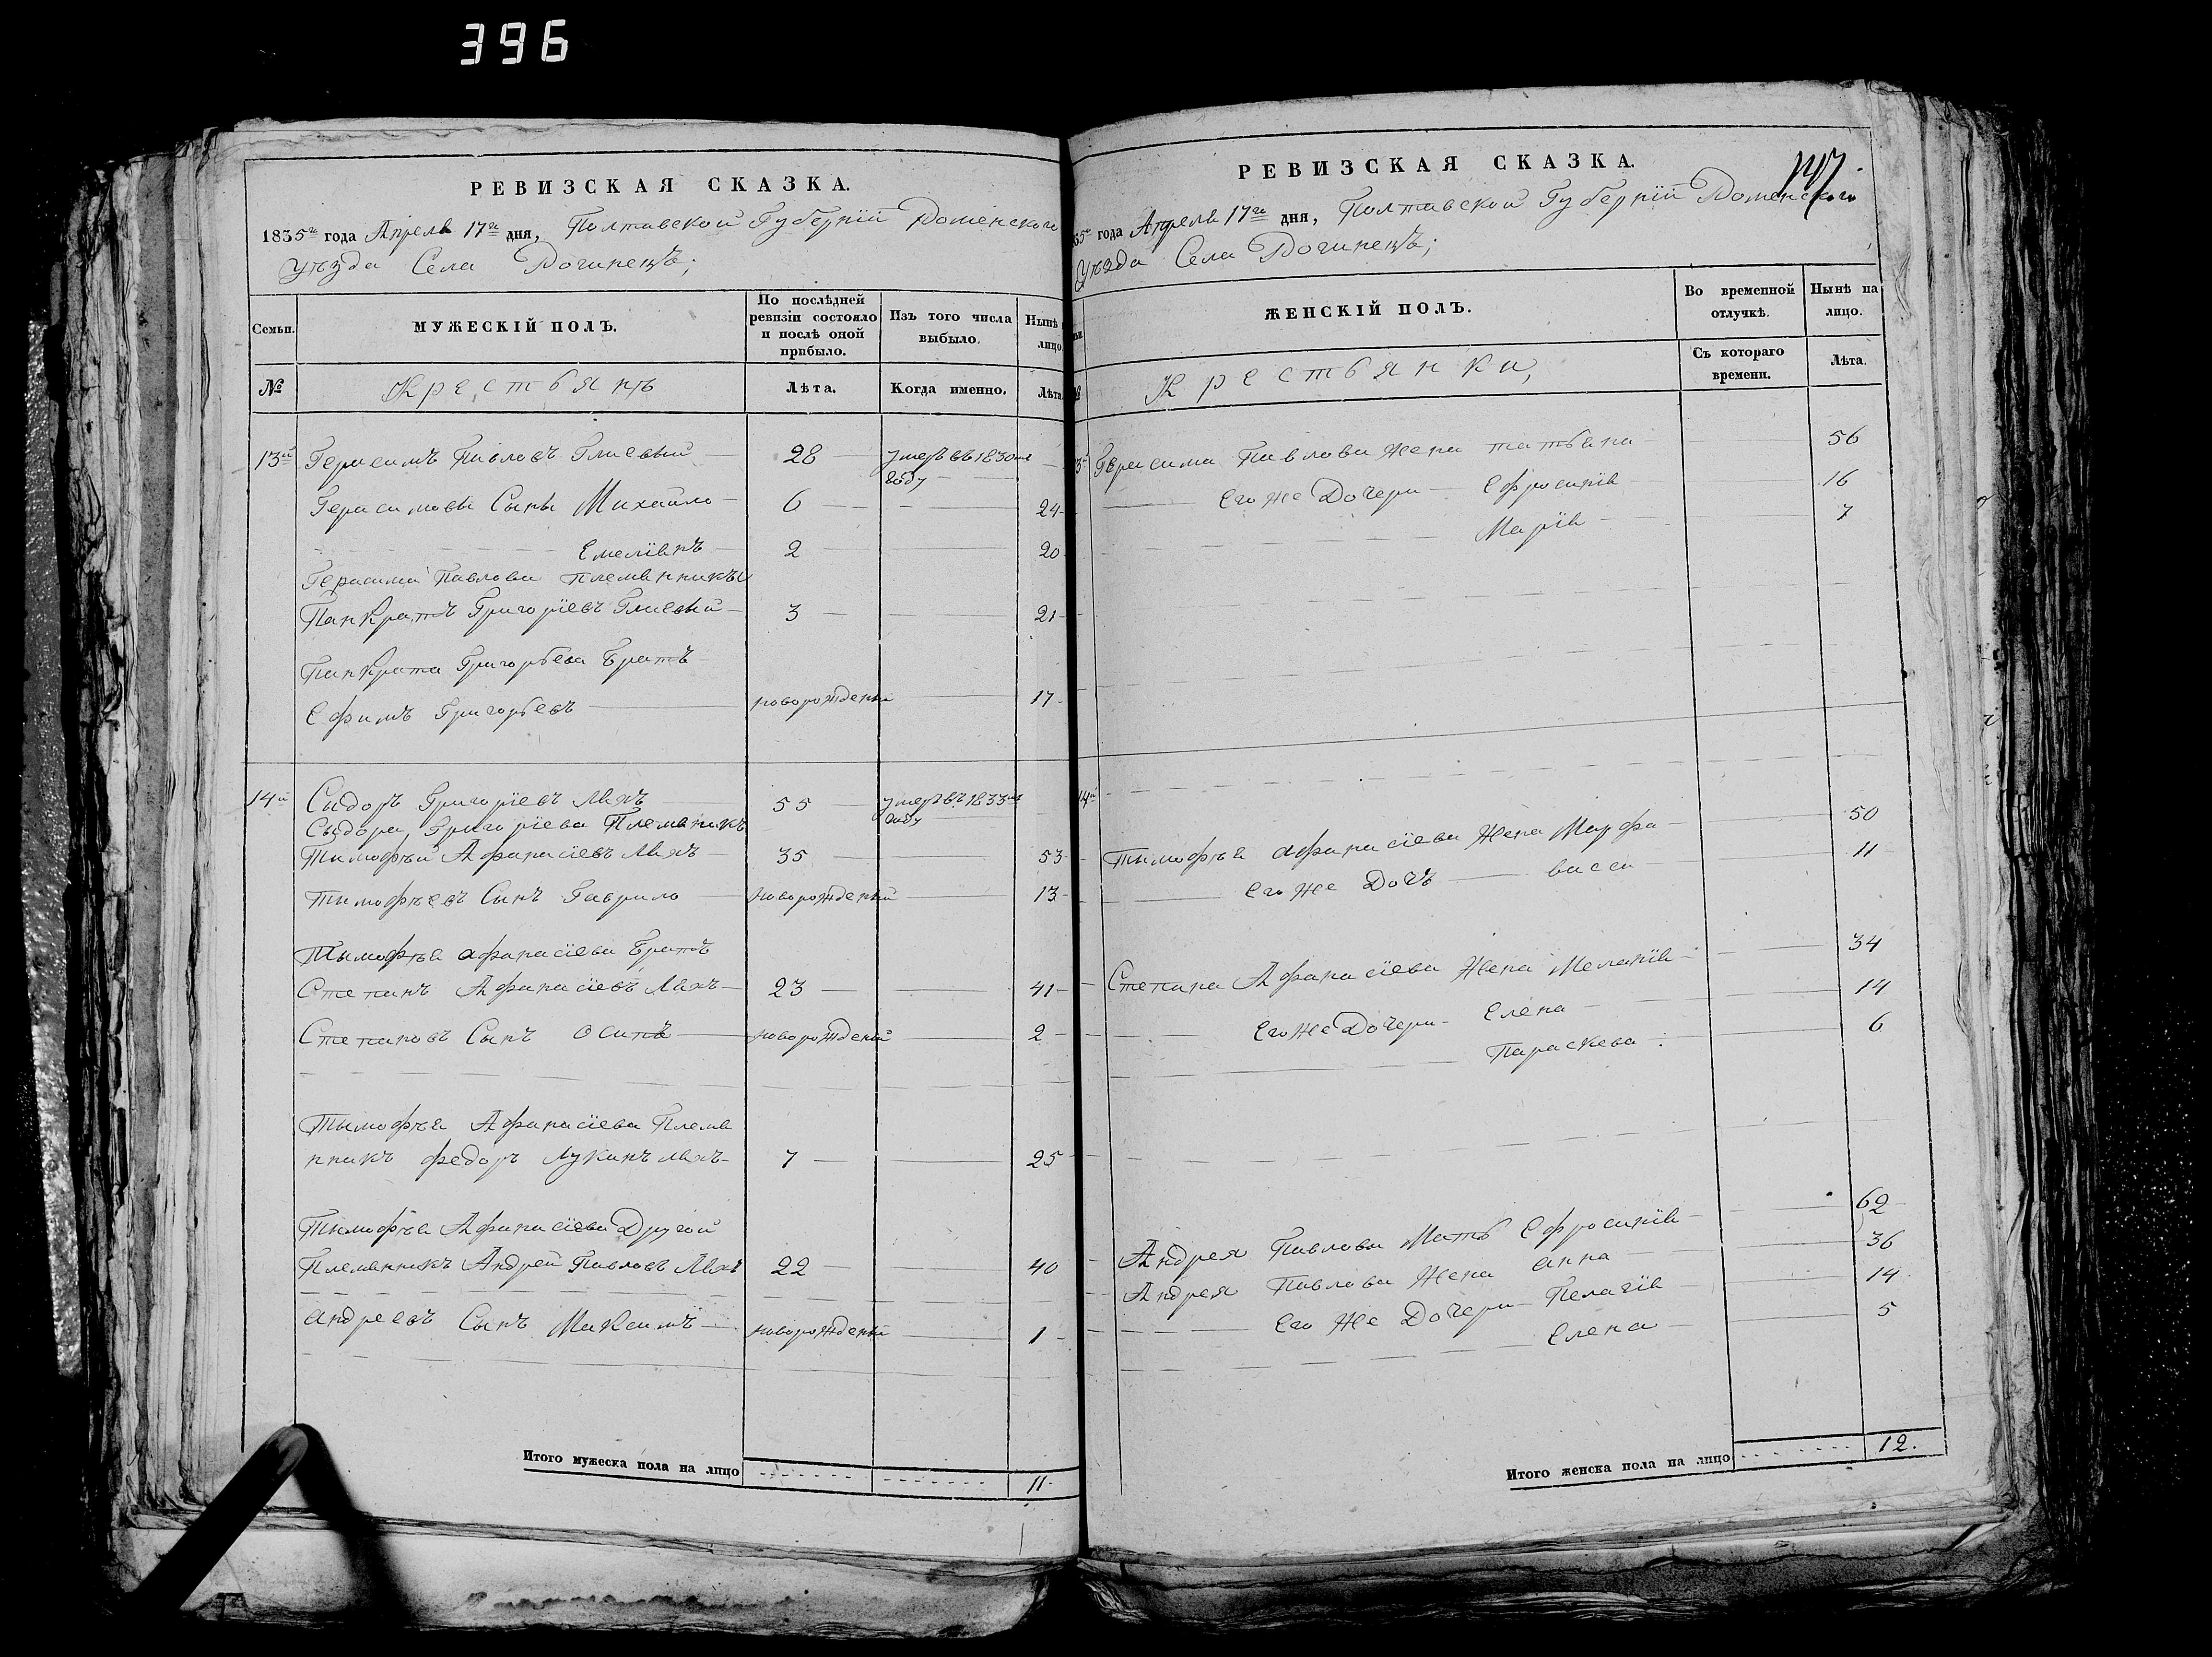 396
РЕВИЗСКАЯ СКАЗКА.
1835го года Апреля 17го дня, Полтавской Губернїи Роменского
уѣзда Села Рогинецъ;
Семьи.
МУЖЕСКІЙ ПОЛЪ.
По послѣдней ревизіи состояло и послѣ оной прибыло.
Изъ того числа выбыло.
Нынѣ лицо
№
Крестьянѣ
Лѣта.
Когда именно.
Лѣта
13й Герасимъ Павловъ 28 умеръ въ 1830м году
Герасимовы Сыны Михайло 6 24
Емелїянъ 2 20
Герасима Павлова племянникъ
Панкратъ Григорїевъ 3 21
Панкрата Григорьева Братъ
Ефимъ Григорьевъ новорожденый 17
14й Сыдоръ Григорїевъ Ляхъ 55 умеръ въ 1833м году
Сыдора Григорїева Племяникъ
Тимофѣй Афанасїевъ Ляхъ 35 53
Тимофѣевъ Сынъ Гаврило новорожденый 13
Тимофѣя афанасїева Братъ
Степанъ Афанасїевъ Ляхъ 23 41
Степановъ Сынъ Осипъ новорожденый 2
Тимофѣя Афанасїева Племя
нникъ федоръ Лукинъ Ляхъ 7 25
Тимофѣя Афанасїева Другой
Племянникъ Андрей Павловъ Ляхъ 22 40
андреевъ Сынъ Максимъ новорожденый 1
Итого мужеска пола на лицо 11
РЕВИЗСКАЯ СКАЗКА.
35го года Апреля 17го дня, Полтавской Губернїи Роменского
уѣзда Села Рогинецъ;
ЖЕНСКІЙ ПОЛЪ.
Во временной отлучкѣ.
Нынѣ на лицо.
Крестьянки,
Съ котораго времени.
Лѣта.
Герасима Павлова жена татьяна 56
Его же Дочери Ефросинїя 16
Марїя 7
14й
Тимофѣя афанасїева Жена Марфа 50
Его же Дочь васса 11
Степана Афанасїева Жена Меланїя 34
Его же Дочери Елена 14
Параскева 6
Андрея Павлова Мать Ефросинїя 62
Андрея Павлова Жена анна 36
Его же Дочери Пелагїя 14
Елена 5
Итого женска пола на лицо 12.